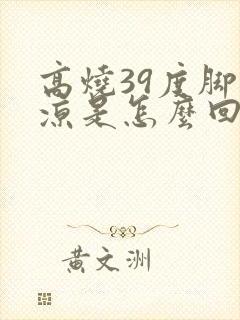 高燒39度脚
凉是怎麼回
黃文洲